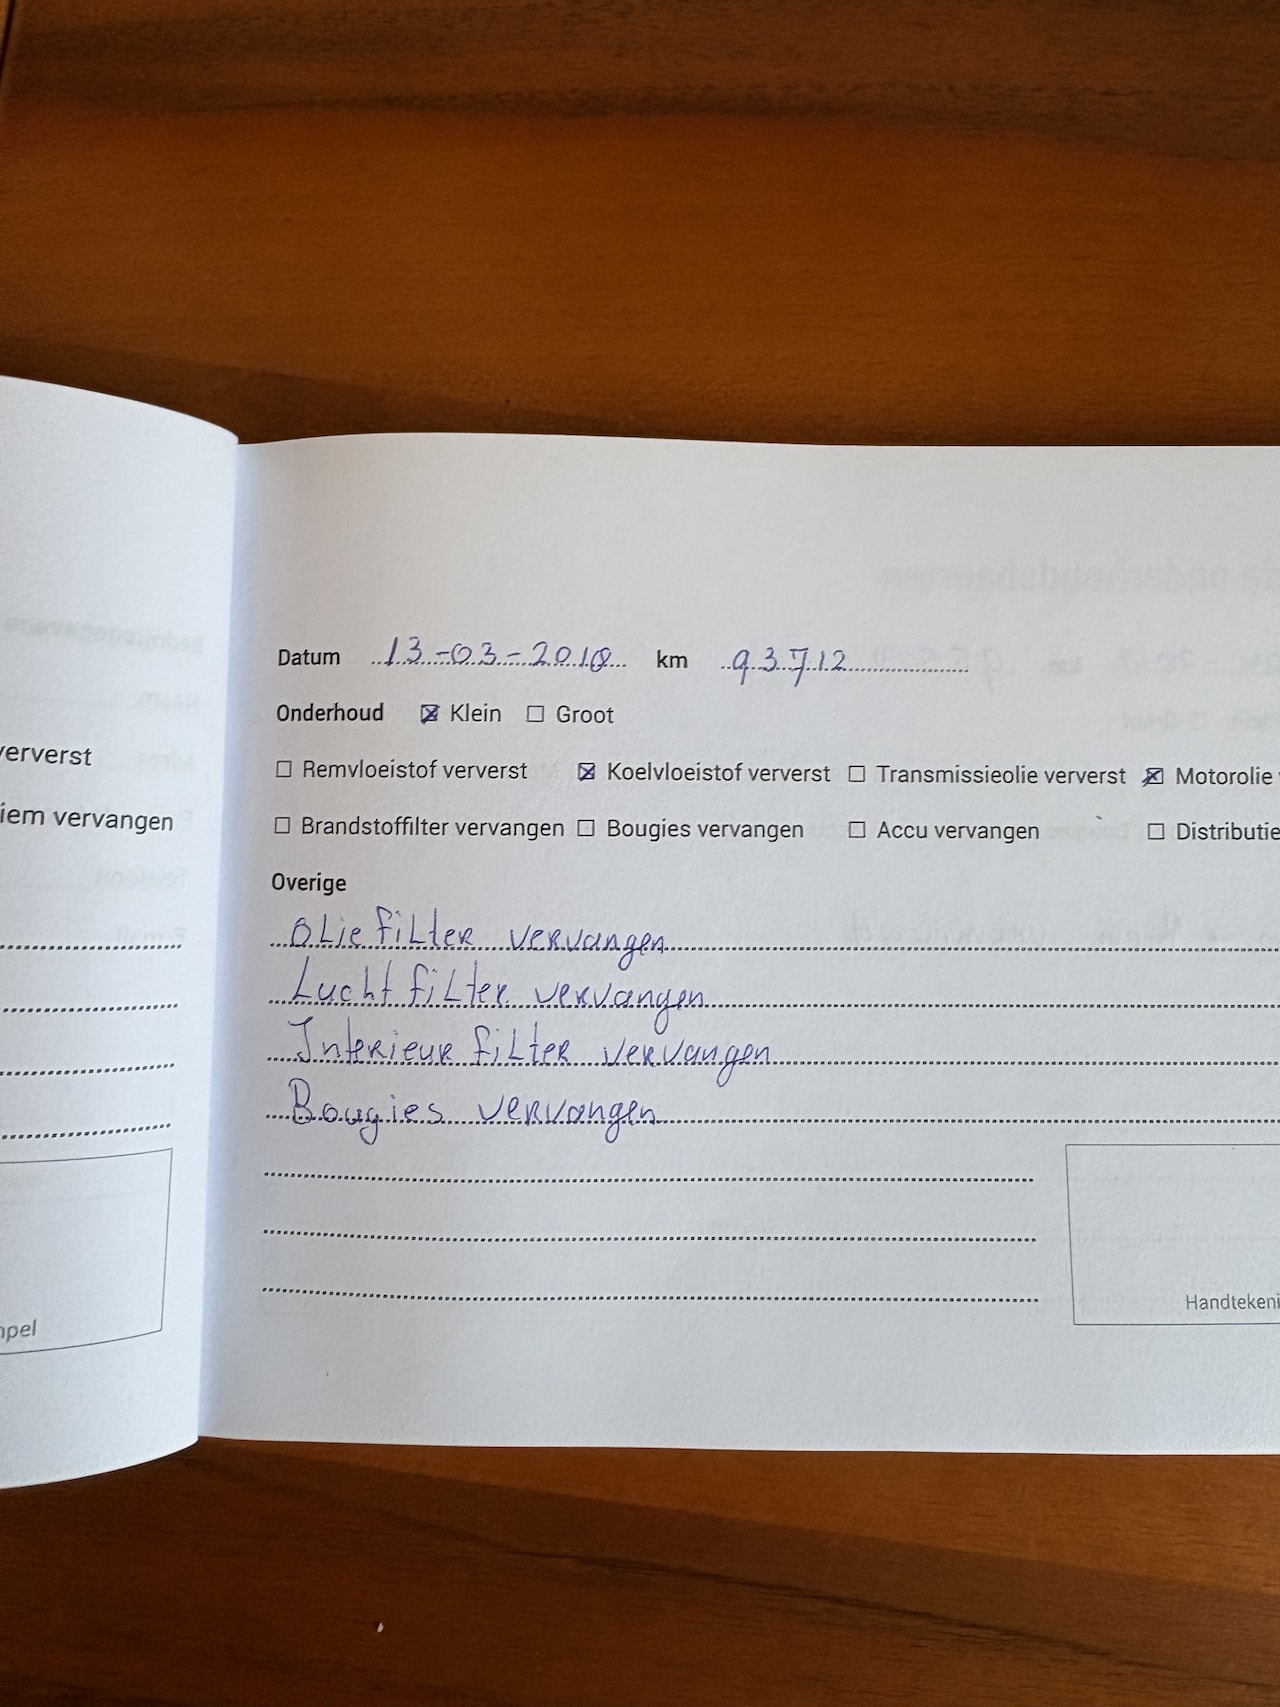 ververst
iem vervangen
mpel
Datum 13-03-2018 km 93712
Onderhoud ☒ Klein ☐ Groot
☐ Remvloeistof ververst ☒ Koelvloeistof ververst ☐ Transmissieolie ververst ☒ Motorolie
☐ Brandstoffilter vervangen ☐ Bougies vervangen ☐ Accu vervangen ☐ Distributie
Overige
Olie filter vervangen
Lucht filter vervangen
Interieur filter vervangen
Bougies vervangen
Handtekeni